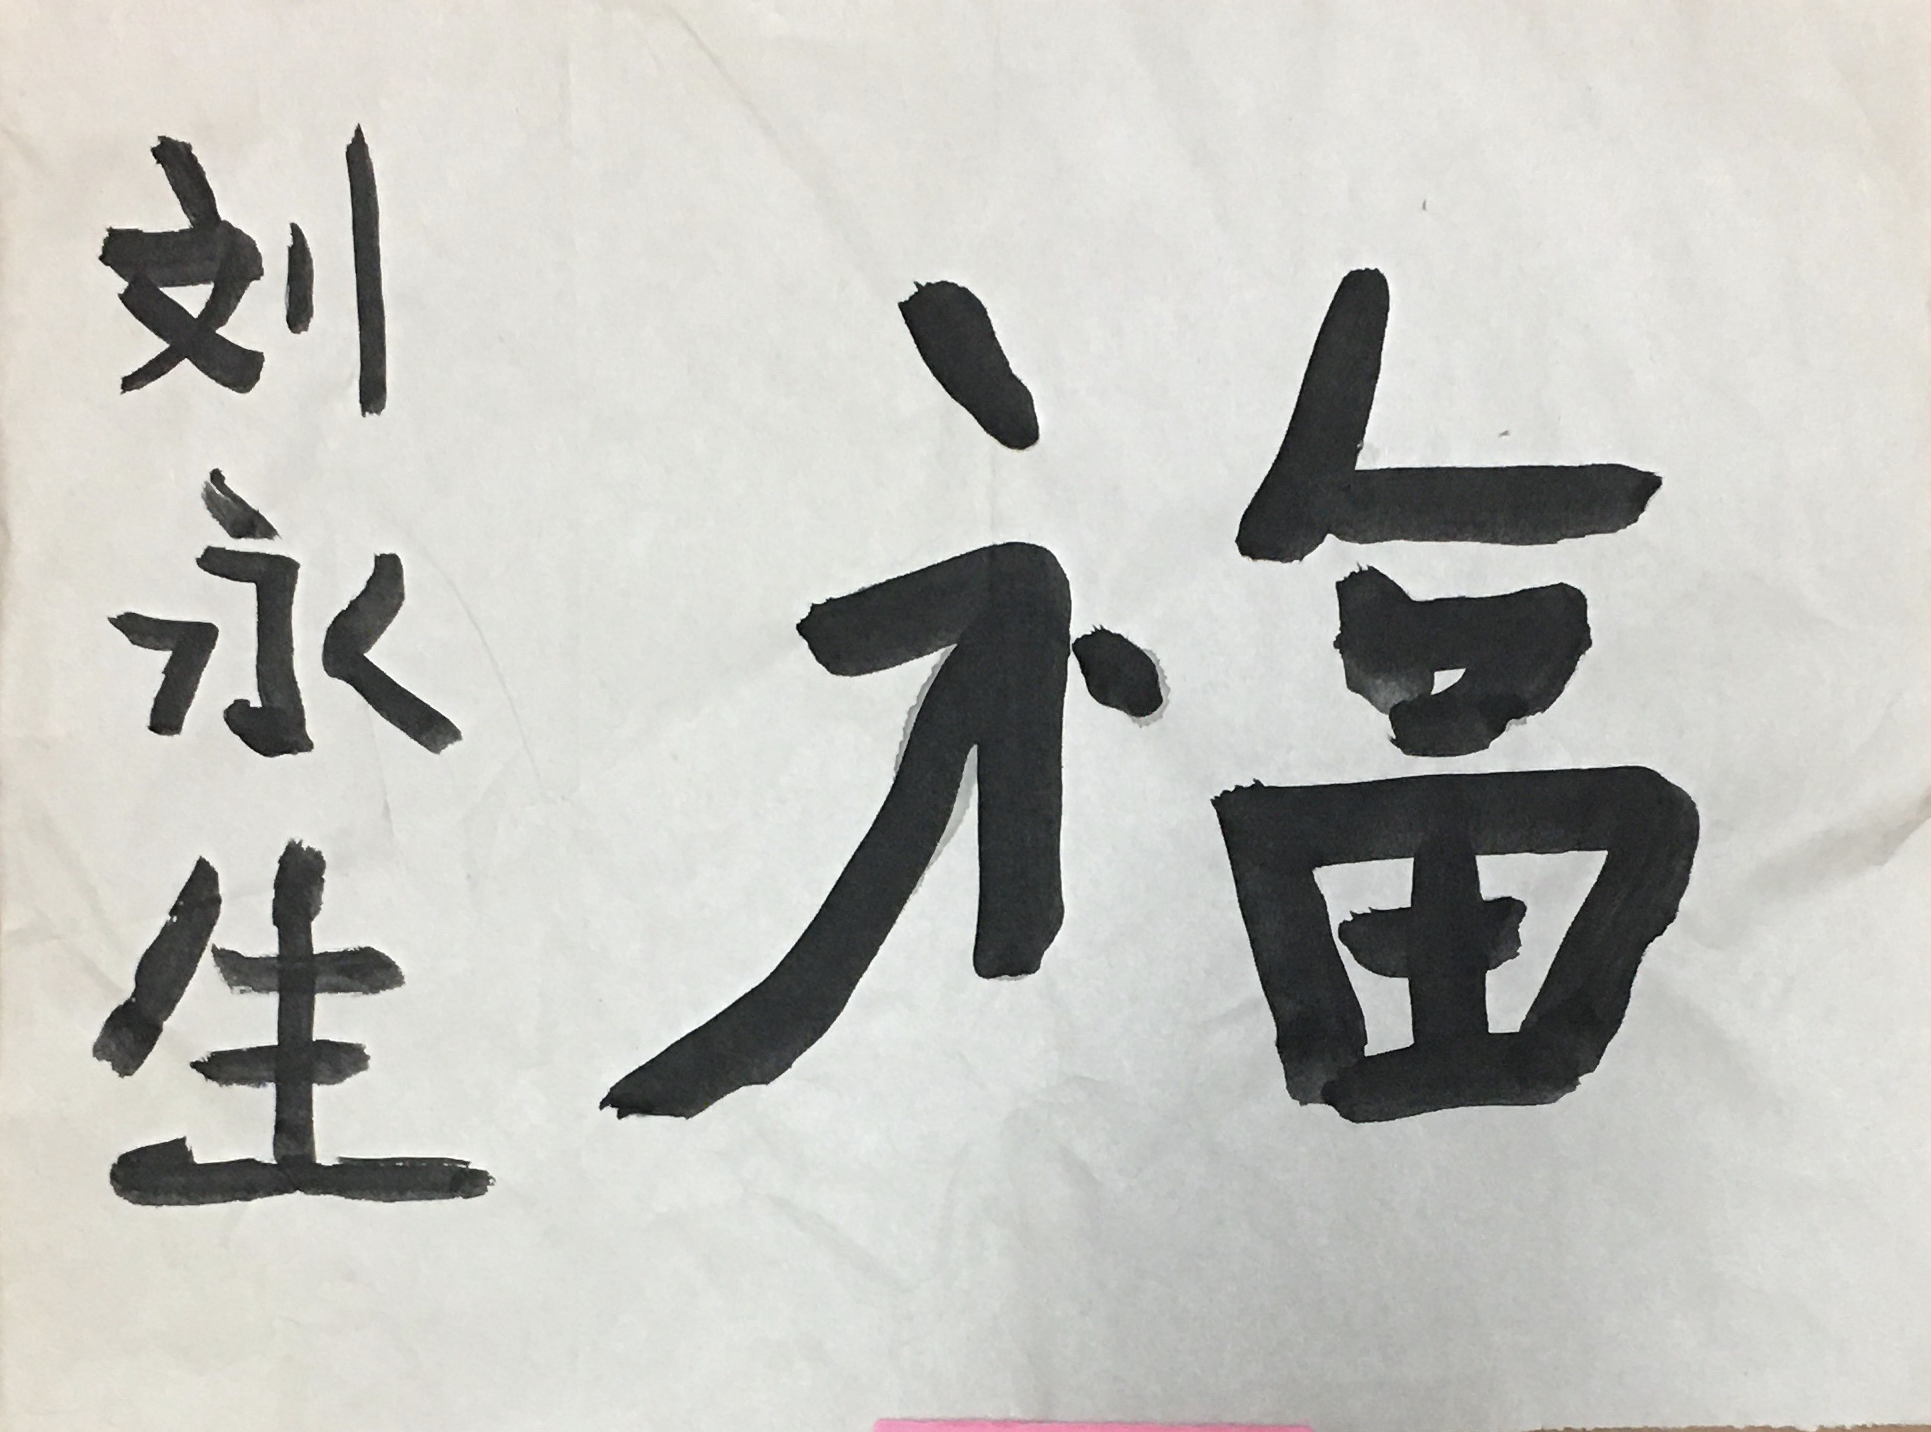 福
刘永生